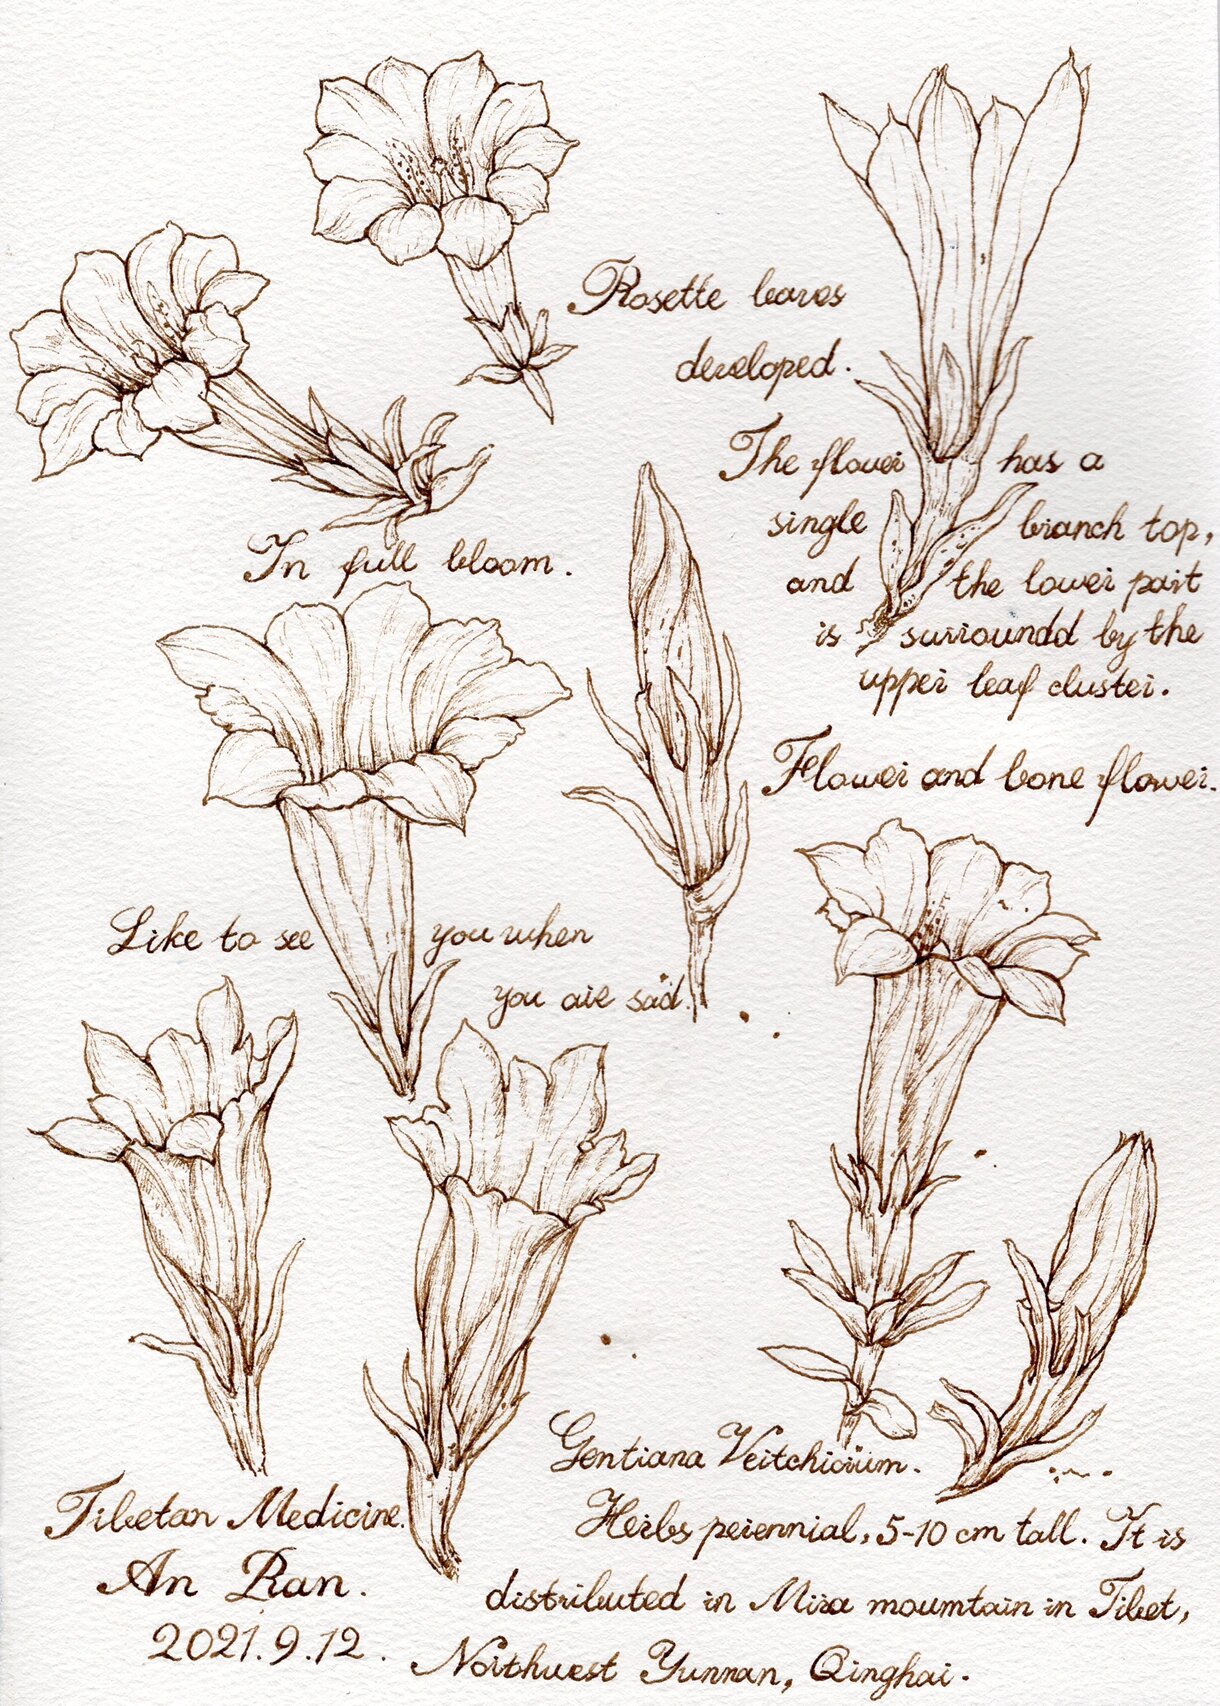 Rosette leaves
developed.
The flower has a
single branch top,
and the lower part
is surroundd by the
upper leaf cluster.
In full bloom.
Flower and bone flower.
Like to see you when
you are sad.
Gentiana Veitchiorum.
Herbs perennial, 5-10 cm tall. It is
distributed in Mira moumtain in Tibet,
Northwest Yunnan, Qinghai.
Tibetan Medicine.
An Ran.
2021.9.12.